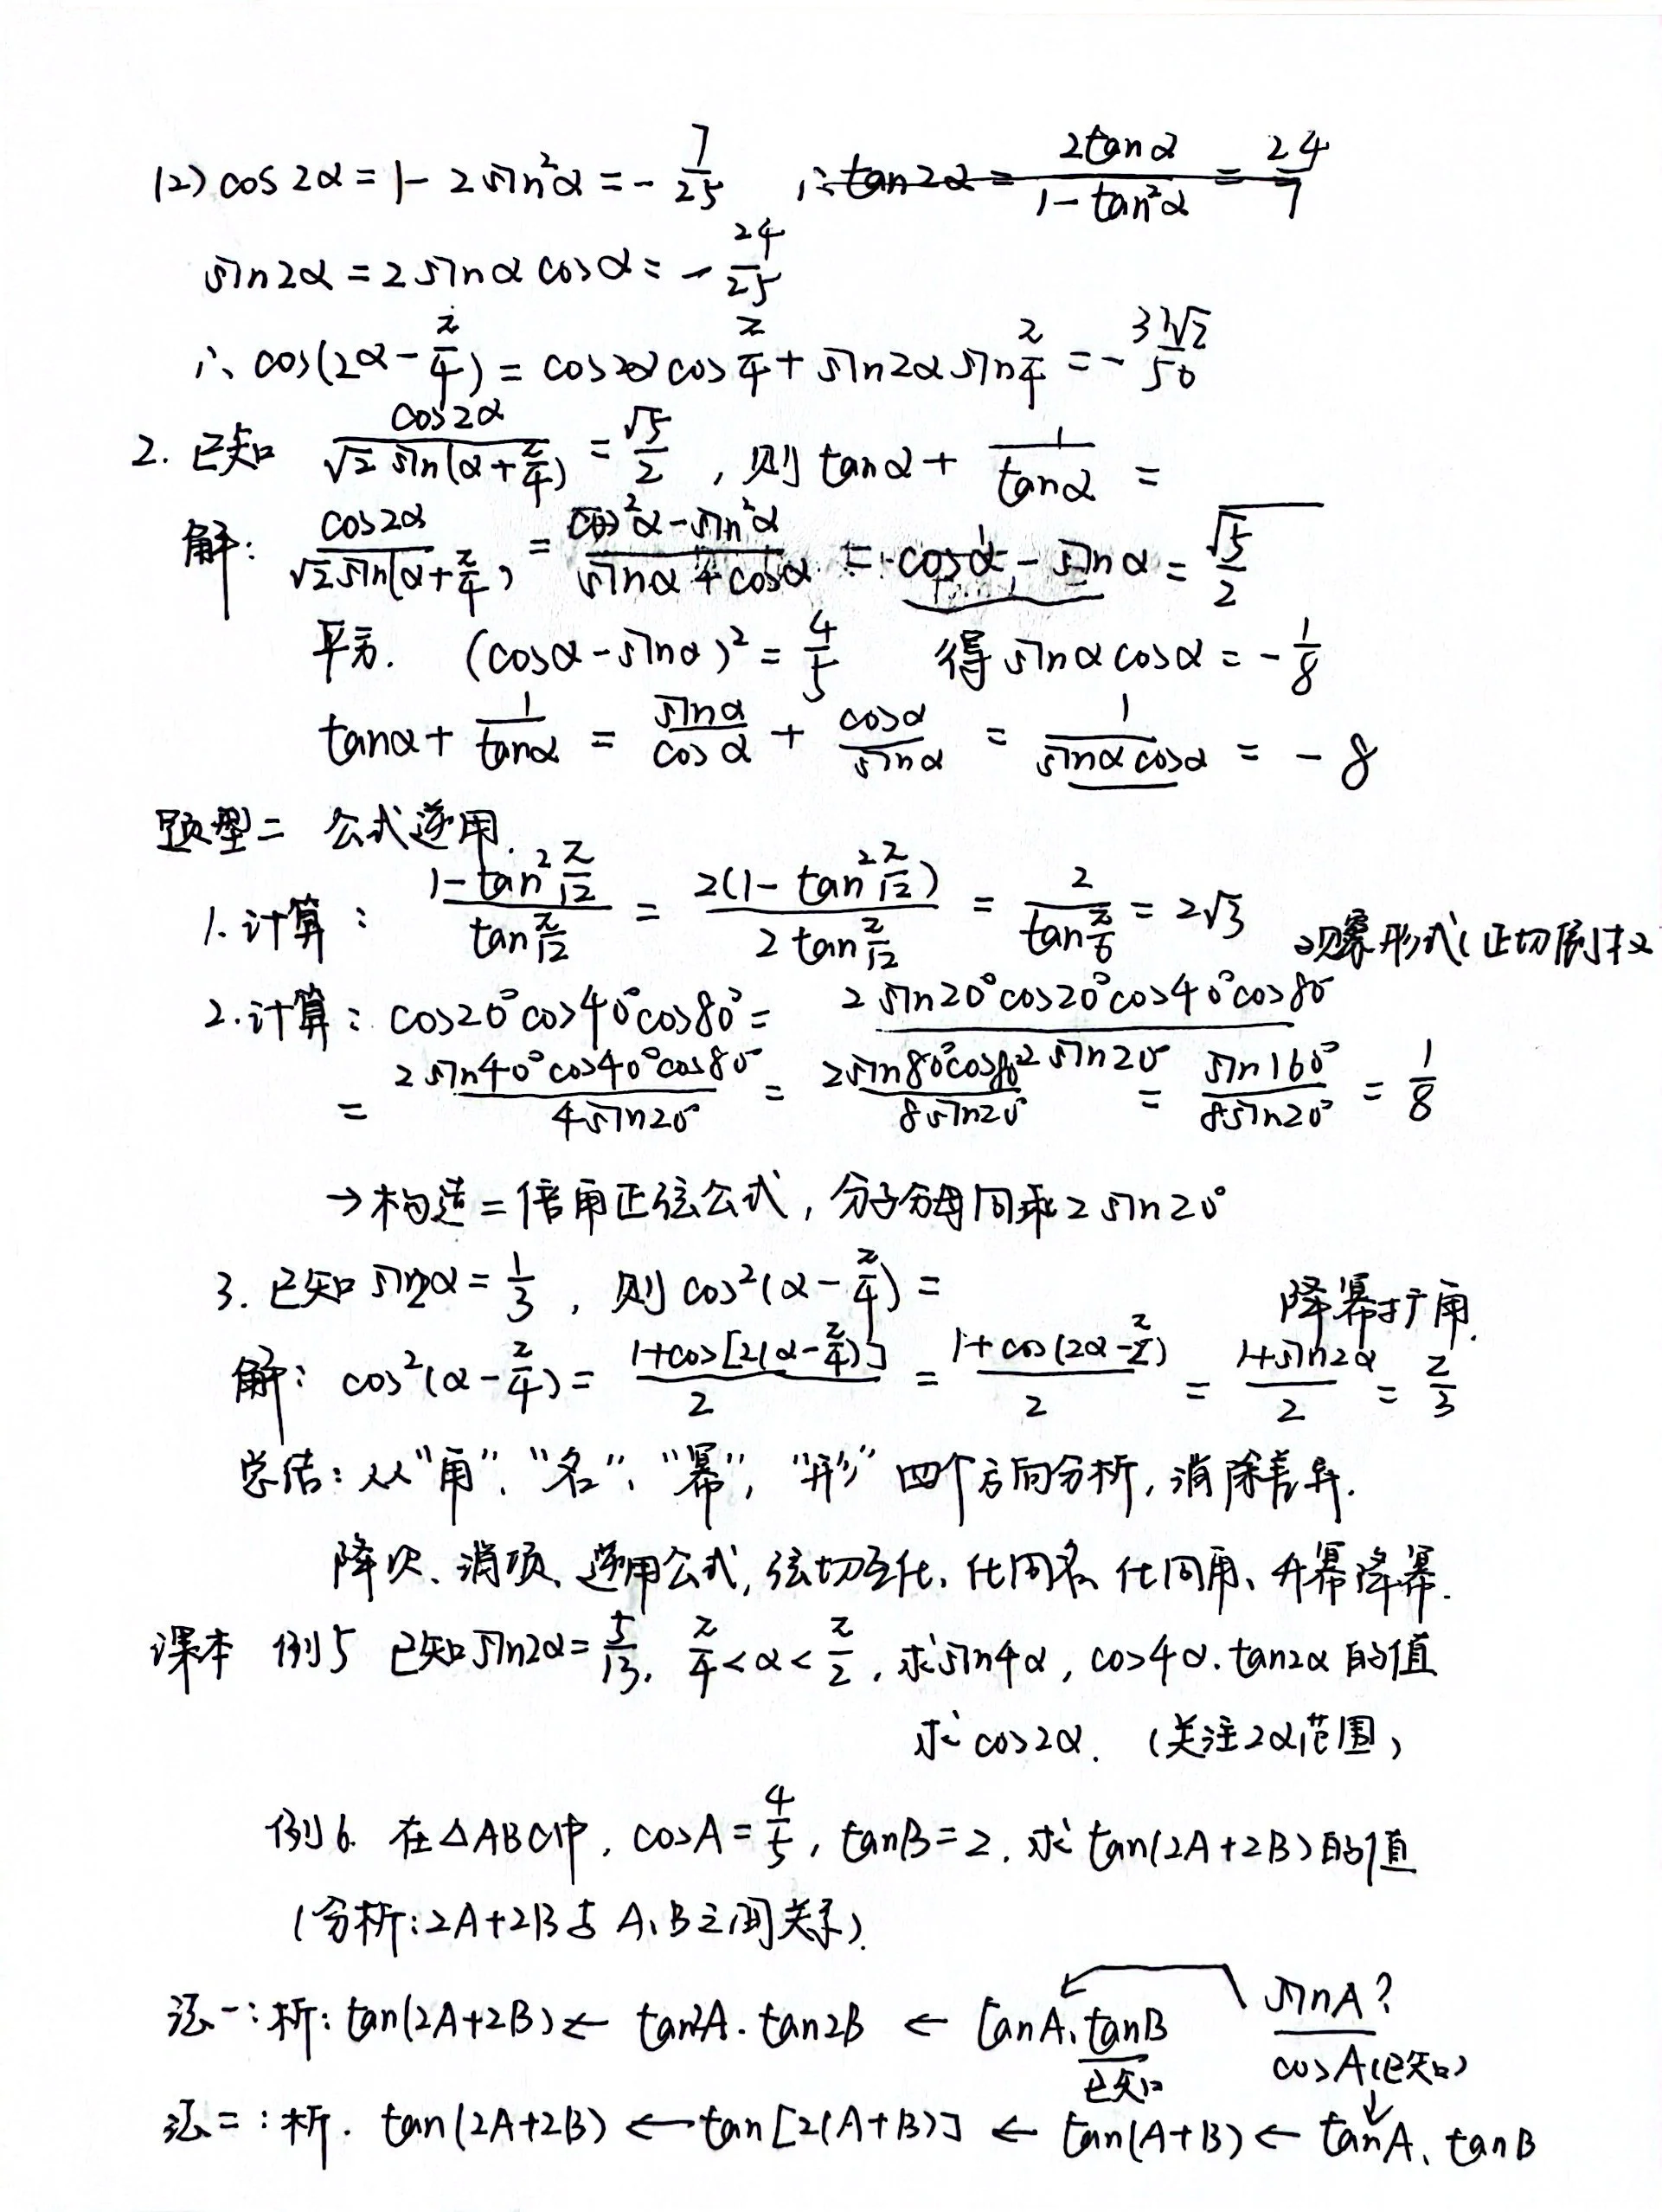 (2) cos2α = 1 - 2sin²α = -7/25 , ∴ tan2α = 2tanα/(1-tan²α) = 24/7
sin2α = 2sinαcosα = -24/25
∴ cos(2α - π/4) = cos2αcosπ/4 + sin2αsinπ/4 = -31√2/50
2. 已知 cos2α/(√2 sin(α+π/4)) = √5/2 , 则 tanα + 1/tanα =
解: cos2α/(√2sin(α+π/4)) = (cos²α - sin²α)/(sinα + cosα) = cosα - sinα = √5/2
平方. (cosα - sinα)² = 4/5 得 sinαcosα = -1/8
tanα + 1/tanα = sinα/cosα + cosα/sinα = 1/(sinαcosα) = -8
题型二 公式逆用.
1. 计算: (1-tan²π/12)/(tanπ/12) = 2(1-tan²π/12)/(2tanπ/12) = 2/(tanπ/6) = 2√3 观察形式(正切倒权
2. 计算: cos20°cos40°cos80° = 2sin20°cos20°cos40°cos80°/(2sin20°)
= 2sin40°cos40°cos80°/(4sin20°) = 2sin80°cos80°/(8sin20°) = sin160°/(8sin20°) = 1/8
→构造二倍角正弦公式, 分子分母同乘2sin20°
3. 已知sin2α = 1/3 , 则 cos²(α - π/4) = 降幂扩角.
解: cos²(α - π/4) = (1+cos[2(α-π/4)])/2 = (1+cos(2α-π/2))/2 = (1+sin2α)/2 = 2/3
总结: 从"角"、"名"、"幂"、"形" 四个方向分析, 消除差异.
降次、消项、逆用公式, 弦切互化、化同名、化同角、升幂降幂.
课本 例5 已知sin2α = 5/13, π/4 < α < π/2 , 求sin4α, cos4α. tan2α的值
求cos2α. (关注2α范围)
例6. 在△ABC中, cosA = 4/5 , tanB = 2. 求 tan(2A+2B)的值
(分析: 2A+2B与 A、B之间关系).
法一: 析: tan(2A+2B) ← tan2A. tan2B ← tanA、tanB 已知 sinA?/cosA(已知)
法二: 析. tan(2A+2B) ← tan[2(A+B)] ← tan(A+B) ← tanA、tanB